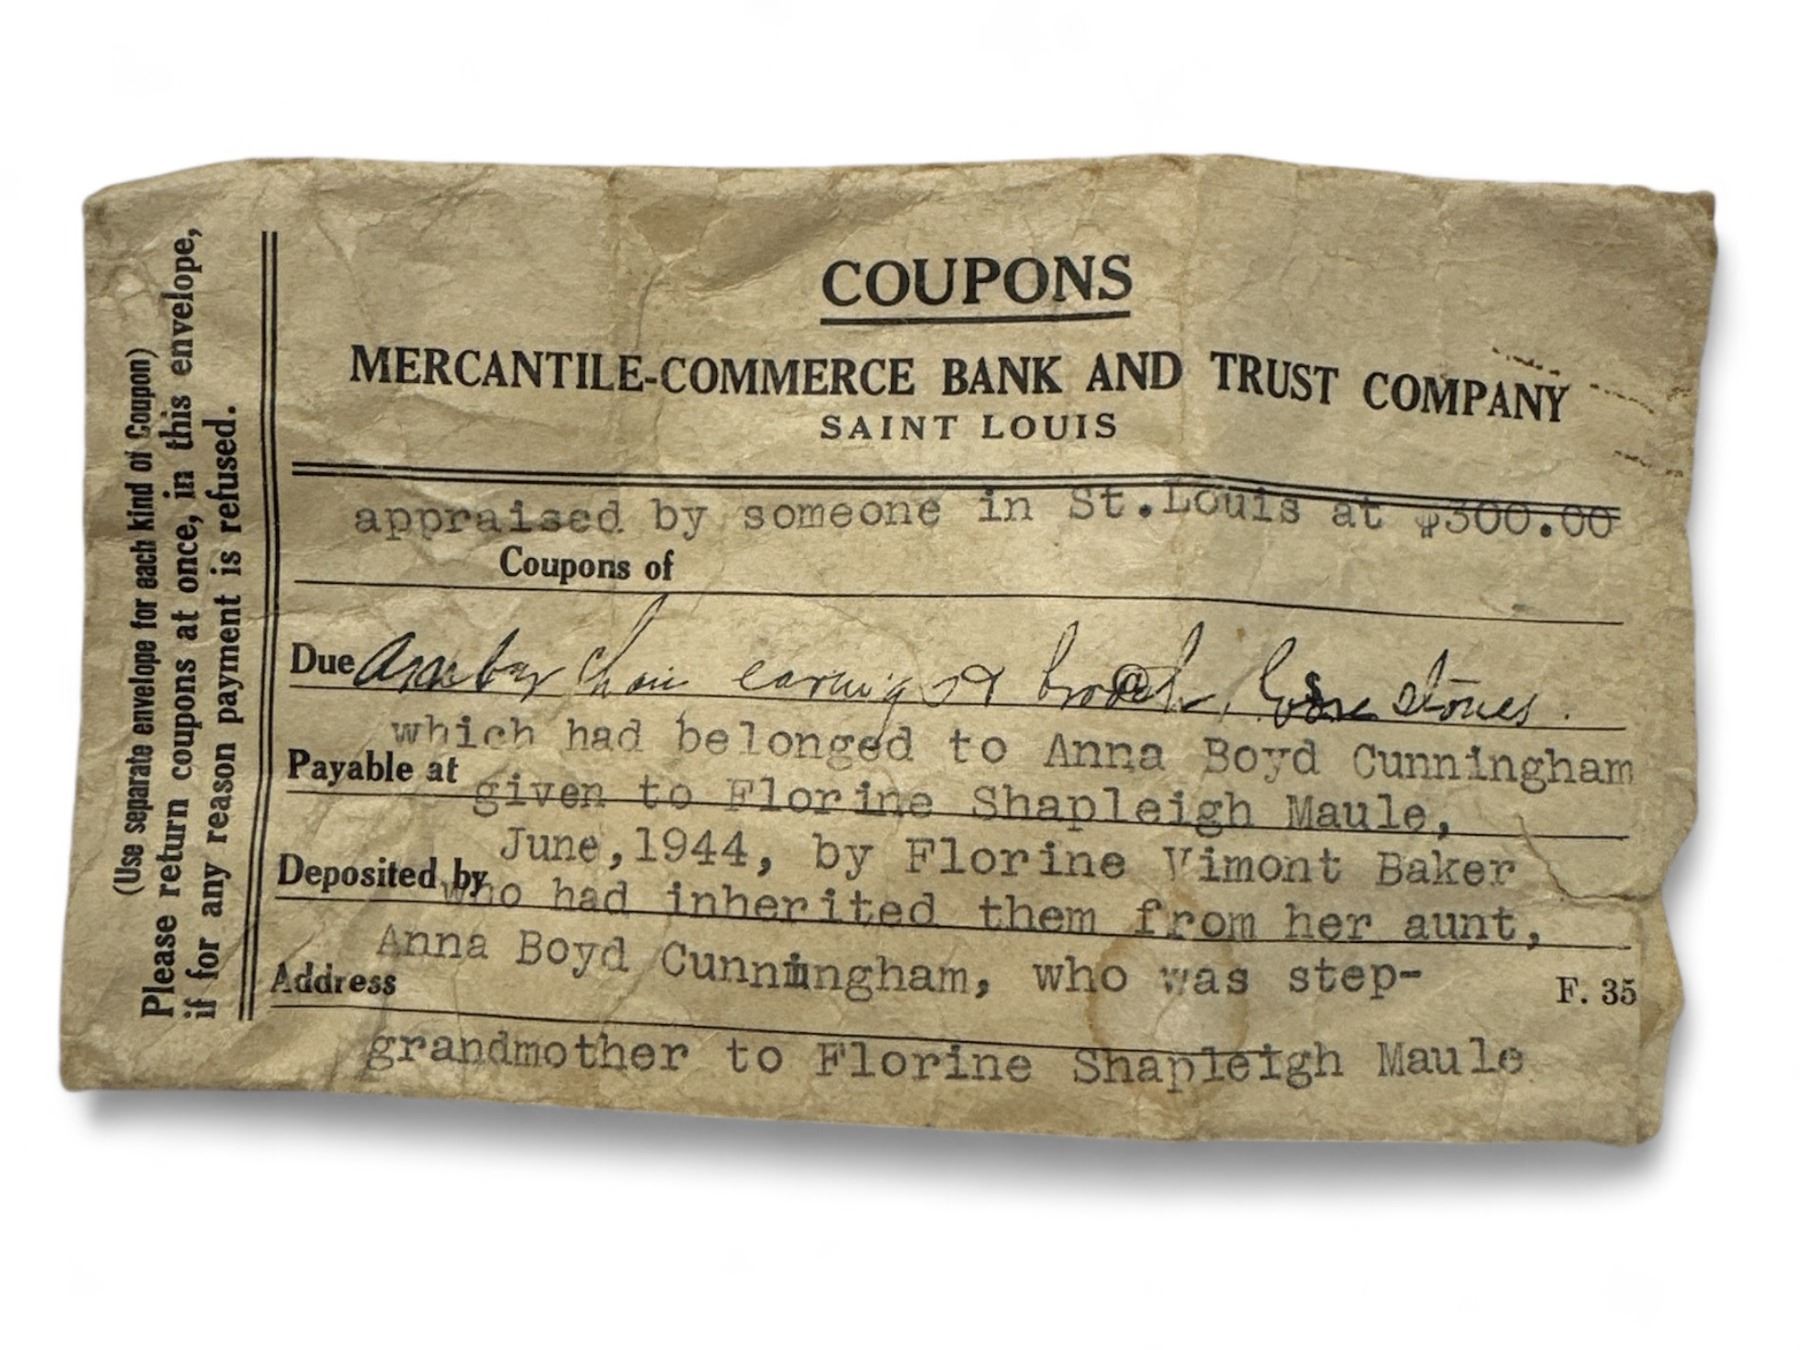 COUPONS
MERCANTILE-COMMERCE BANK AND TRUST COMPANY
SAINT LOUIS
appraised by someone in St.Louis at $300.00
Coupons of
Due chain earrings & brooch, loose stones.
which had belonged to Anna Boyd Cunningham
Payable at
given to Florine Shapleigh Maule,
June,1944, by Florine Vimont Baker
Deposited by
who had inherited them from her aunt,
Anna Boyd Cunningham, who was step-
Address
F. 35
grandmother to Florine Shapleigh Maule
(Use separate envelope for each kind of Coupon)
Please return coupons at once, in this envelope,
if for any reason payment is refused.